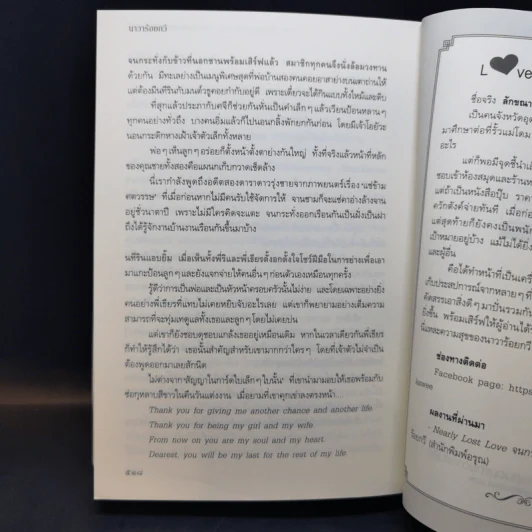 นาวาร้อยกวี
จนกระทั่งกับข้าวที่นอกชานพร้อมเสิร์ฟแล้ว สมาชิกทุกคนจึงนั่งล้อมวงทาน
ด้วยกัน มีทะเลย่างเป็นเมนูพิเศษสุดที่พ่อบ้านสองคนคอยอาสาย่างบนเตาถ่านให้
แต่ต้องมีนทีรินกับมนต์วธูคอยกำกับอยู่ดี เพราะเดี๋ยวจะได้กินแบบทั้งไหม้และดิบ
ที่สุดแล้วประภากับตจีก็ช่วยกันหั่นเป็นคำเล็กๆ แล้วเวียนป้อนหลานๆ
ทุกคนอย่างทั่วถึง บางคนอิ่มแล้วก็ไปนอนกลิ้งพักยกกันก่อน โดยมีเจ้าโอย๊วะ
นอนกระดิกหางเฝ้าเจ้าตัวเล็กทั้งหลาย
พ่อๆ เห็นลูกๆ อร่อยก็ตั้งหน้าตั้งตาย่างกันใหญ่ ทั้งที่จริงแล้วหน้าที่หลัก
ของคุณชายทั้งสองคือแผนกเก็บกวาดเช็ดล้าง
นี่เรากำลังพูดถึงอดีตสองดาราดาวรุ่งชายจากภาพยนตร์เรื่อง 'แซ่ข้าม
ศตวรรษ' ที่เมื่อก่อนหากไม่มีคนรับใช้จัดการให้ จานชามก็จะแช่คาอ่างล้างจาน
อยู่ชั่วนาตาปี เพราะไม่มีใครคิดจะแตะ จนกระทั่งออกเรือนกันเป็นฝั่งเป็นฝา
ถึงได้รู้จักงานบ้านงานเรือนกันขึ้นมาบ้าง
นทีรินแอบยิ้ม เมื่อเห็นทั้งพี่รินและพี่เธียรตั้งอกตั้งใจโชว์ฝีมือในการย่างเพื่อเอา
มาแกะป้อนลูกๆ และยังแจกจ่ายให้คนอื่นๆ ก่อนตัวเองเหมือนทุกครั้ง
รู้ดีว่าการเป็นพ่อและเป็นหัวหน้าครอบครัวนั้นไม่ง่าย และโดยเฉพาะอย่างยิ่ง
คนอย่างพี่เธียรที่แทบไม่เคยหยิบจับอะไรเลย แต่เขาก็พยายามอย่างเต็มความ
สามารถที่จะทุ่มเทดูแลทั้งเธอและลูกๆ โดยไม่เคยบ่น
แต่เขาก็ยังชอบดุชอบแกล้งเธออยู่เหมือนเดิม หากในเวลาเดียวกันพี่เธียร
ก็ทำให้รู้สึกได้ว่า เธอนั้นสำคัญสำหรับเขามากกว่าใครๆ โดยที่เจ้าตัวไม่จำเป็น
ต้องพูดออกมาเลยสักนิด
ไม่ต่างจาก 'สัญญาในการ์ดใบเล็กๆ ใบนั้น' ที่เขานำมามอบให้เธอพร้อมกับ
ช่อกุหลาบสีขาวในคืนวันแต่งงาน เมื่อยามที่เขาคุกเข่าลงตรงหน้า...
Thank you for giving me another chance and another life
Thank you for being my girl and my wife
From now on you are my soul and my heart
Dearest, you will be my last for the rest of my life
๕๑๘
L ve
ชื่อจริง ลักขณา
เป็นคนจังหวัดอุด
มาศึกษาต่อที่รั้วแม่โดม
อะไร
แต่ก็พอมีจุดชี้นำเล็
ชอบเข้าห้องสมุดและร้านห
แต่ถ้าเป็นหนังสือปุ๊บ ราคา
ควักตังค์จ่ายทันที เมื่อก่อ
แต่สุดท้ายก็ยังคงเป็นพนัก
เป้าหมายอยู่บ้าง แม้ไม่ได้ยิ่ง
และผู้อื่น
คือได้ทำหน้าที่เป็นเครื่
เก็บประสบการณ์จากหลายๆ ที่
คัดสรรเอาสิ่งดีๆ มาปั่นรวมกัน
ยิ่งขึ้น พร้อมเสิร์ฟให้ผู้อ่านได้
นี่แหละความสุขของนาวาร้อยกวี
ช่องทางติดต่อ
Facebook page: https
ผลงานที่ผ่านมา
- Nearly Lost Love จนกร
ร้อยกวี (สำนักพิมพ์อรุณ)